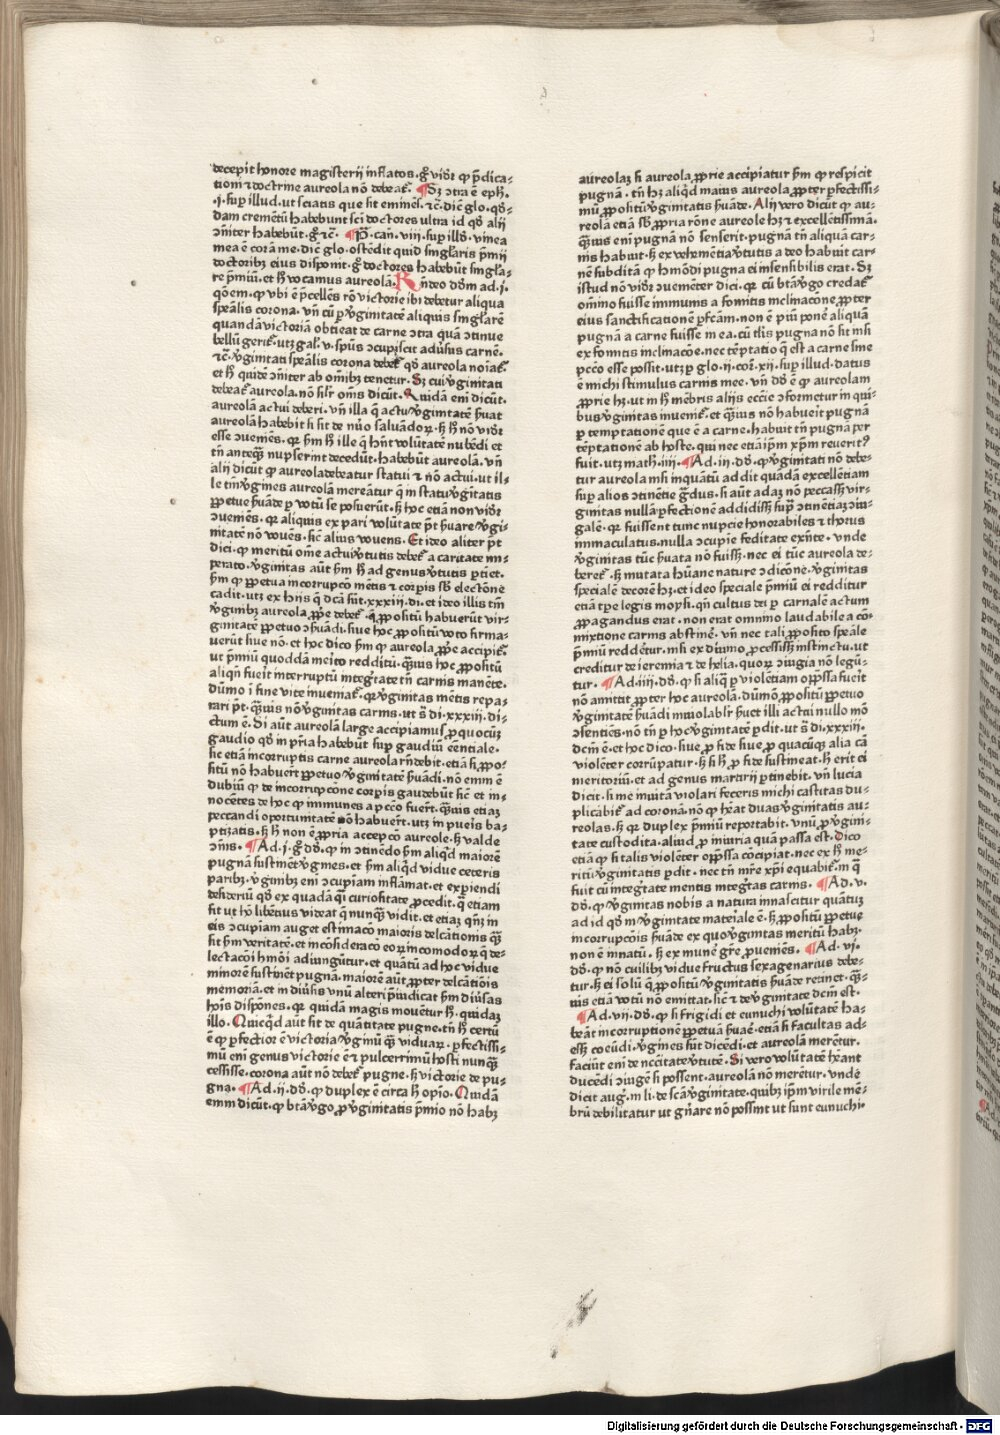 decepit honore magisterii inflatos. gͦ vidr̄ ꝙ p̄dica-
tioni ⁊ doctrine aureola nō debeat᷑. ¶ Sꝫ ↄtra ē eph.
.i. suꝑ illud. ut sciatis que sit eminēt. ⁊c̄. dic̄ glo. qd̄-
dam cremētū habebunt sc̄i doctores ultra id qd̄ alij
ↄn̄iter habebūt. gͦ ⁊c̄. ¶ P̄. can̄. viij. suꝑ illd̄. vinea
mea ē corā me. dic̄ glo. ostēdit quid singl̓aris p̄mij
doctoribꝫ eius disponit. gͦ doctores habebūt singl̓a-
re p̄miū. et hͦ vocamus aureolā. Rn̄deo dd̄m ad .j.
qōem. ꝙ ubi ē p̄cellēs rō victorie ibi debetur aliqua
spēalis corona. vn̄ cū ꝑ v̓ginitatē aliquis singl̓arē
quandā victoriā obtineat de carne ↄtra quā ↄtinue
bellū gerit᷑. utꝫ gal̓. v. sp̄us ↄcupiscit adūsus carnē.
⁊c̄. v̓ginitati spēalis corona debet᷑ q̄ aureola noīat᷑.
et hͦ quidē ↄn̄iter ab om̄ibꝫ tenetur. Sꝫ cui v̓ginitati
debeat᷑ aureola. nō sil̓r om̄s dicūt. Quidā eni dicūt.
aureolā actui deberi. vn̄ illa q̄ actu v̓ginitatē s̓uat
aureolā habebit si sit de nūo saluādoꝝ. sꝫ hͦ nō vidr̄
esse ↄueniēs. qꝛ sm̄ hͦ ille q̄ hn̄t volūtatē nubēdi et
tn̄ anteq̄ꝫ nupserint decedūt. habebūt aureolā. vn̄
alij dicūt ꝙ aureola debeatur statui ⁊ nō actui. ut il-
le tm̄ v̓gines aureolā mereātur q̄ in statu v̓gitatis
ꝑpetue s̓uāde ꝑ votū se posuerūt. sꝫ hoc etiā non vidr̄
ↄueniēs. qꝛ aliquis ex pari volūtate pt̄ s̓uare v̓gi-
nitatē nō vouēs. sic̄ alius vouens. Et ideo aliter pt̄
dici. ꝙ meritū om̄e actui v̓tutis debet᷑ a caritate im-
perato. v̓ginitas aūt sm̄ hͦ ad genus v̓tutis ꝑtinet.
sm̄ ꝙ ꝑpetua incorrupcō mētis ⁊ corꝑis sb̄ electōne
cadit. utꝫ ex hijs q̄ dcā sūt. xxxiij. di. et ideo illis tm̄
v̓ginibꝫ aureola ꝓp̄e debet᷑. q̄ ꝓpositū habuerūt vir-
ginitatē ꝑpetuo ↄs̓uādi. siue hoc ꝓpositū voto firma-
uerūt siue nō. et hoc dico sm̄ ꝙ aureola ꝓp̄e accipit᷑.
ut p̄miū quoddā mei̓to redditū. q̄ꝫuis hoc ꝓpositū
aliqn̄ fueit interruptū integ̓tate tn̄ carnis manēte.
dūmo ī fine vite inueniat᷑. qꝛ v̓ginitas mētis repa-
rari pt̄. q̄ꝫuis nō v̓ginitas carnis. ut s̄ di. xxxiij. di-
ctum ē. Si aūt aureolā large accipiamus ꝓ quocūqꝫ
gaudio qd̄ in pr̄ia habebūt suꝑ gaudiū eēntiale.
sic etiā incorruptis carne aureola rn̄debit. etiā si ꝓpo-
sitū nō habuert̄ ꝑpetuo v̓ginitatē s̓uādi. nō enim ē
dubiū ꝙ de incorrupcone corꝑis gaudebūt sic̄ et in-
nocētes de hoc ꝙ immunes a pcc̄o fuert̄. q̄ꝫuis etiaꝫ
peccandi oportunitatē nō habuert̄. utꝫ in pueis ba-
ptizatis. sꝫ hͦ non ē ꝓpria accepcō aureole. sꝫ valde
ↄn̄is. ¶ Ad .j. gͦ dd̄. ꝙ in ↄtinēdo sm̄ aliqd̄ maiorē
pugnā sustinēt v̓gines. et sm̄ aliqd̄ vidue ceteris
paribꝫ. v̓ginibꝫ eni ↄcupīam inflāmat. et experiendi
desideriū qd̄ ex quadā q̄si curiositate ꝓcedit. q̄ etiam
fit ut hō libētius videat q̄ nunq̄ꝫ vidit. et etiaꝫ qn̄ꝫ in
eis ↄcupīam auget estimacō maioris delcātionis q̄ꝫ
sit sm̄ veritatē. et incōsideracō eoꝝ incomodoꝝ q̄ de-
lectacōi hmōi adiungūtur. et quātū ad hoc vidue
minorē sustinent pugnā. maiorē aūt ꝓpter delcātiōis
memoriā. et in diūsis unū alteri p̄iudicat sm̄ diūsas
hoīs dispōnes. qꝛ quidā magis mouētur hͦ. quidaꝫ
illo. Quicqd̄ aūt sit de quātitate pugne. tn̄ hͦ certū
ē ꝙ ꝑfectior ē victoria v̓ginū q̄ꝫ viduaꝝ. ꝑfectissi-
mū eni genus victorie ē ⁊ pulcerrimū hosti nunq̄ꝫ
cessisse. corona aūt nō debet᷑ pugne. sꝫ victorie de pu-
gna. ¶ Ad .ij. dd̄. ꝙ duplex ē circa hͦ opīo. Quidā
enim dicūt. ꝙ bt̄a v̓go ꝓ v̓ginitatis p̄mio nō habꝫ
aureolaꝫ si aureola ꝓprie accipiatur sm̄ ꝙ respicit
pugnā. tn̄ hꝫ aliqd̄ maius aureola ꝓpter ꝑfectissi-
mū ꝓpositū v̓ginitatis s̓uāde. Alij vero dicūt ꝙ au-
reolā etiā sb̄ ꝓpria rōne aureole hꝫ ⁊ excellētissimā.
q̄ꝫuis eni pugnā nō senserit. pugnā tn̄ aliquā car-
nis habuit. sꝫ ex vehemētia v̓tutis adeo habuit car-
nē subditā ꝙ hmōdi pugna ei insensibilis erat. Sꝫ
istud nō vidr̄ ↄueniēter dici. qꝛ cū bt̄a v̓go credat᷑
om̄īno fuisse immunis a fomitis inclinacōne ꝓpter
eius sanctificationē ꝑfcām. non ē piū ponē aliquā
pugnā a carne fuisse in ea. cū tl̓is pugna nō sit nisi
ex fomitis inclinacōe. nec tēptatio q̄ est a carne sine
pcc̄o esse possit. utꝫ ꝑ glo. ij. cor. xij. suꝑ illud. datus
ē michi stimulus carnis mee. vn̄ dd̄ ē ꝙ aureolam
ꝓprie hꝫ. ut in hͦ mēbris alijs ecc̄ie ↄformetur in qui-
bus v̓ginitas inuenit᷑. et q̄ꝫuis nō habueit pugnā
ꝑ temptationē que ē a carne. habuit tn̄ pugnā per
tēptationē ab hoste. qui nec etiā ip̄m xp̄m reuerit᷑
fuit. utꝫ math. iiij. ¶ Ad .iij. dd̄. ꝙ v̓ginitati nō debe-
tur aureola nisi inquātū addit quādā excellētiam
suꝑ alios ↄtinētie gᷓdus. si aūt adaꝫ nō peccasset vir-
ginitas nullā ꝑfectionē addidisset supᷓ ↄtinētiaꝫ ↄiu-
galē. qꝛ fuissent tunc nupcie honorabiles ⁊ thorus
immaculatus. nulla ↄcupie feditate exn̄te. vnde
v̓ginitas tūc s̓uata nō fuisset. nec ei tūc aureola de-
beret᷑. sꝫ mutata hūane nature ↄdicōne. v̓ginitas
specialē decorē hꝫ. et ideo speciale p̄miū ei redditur
etiā tꝑe legis moysi. qn̄ cultus dei ꝑ carnalē actum
ꝓpagandus erat. non erat omnino laudabile a cō-
mixtione carnis abstinē. vn̄ nec tali ꝓposito spēale
p̄miū reddētur. nisi ex diuino ꝓcessisset instinctu. ut
creditur de ieremia ⁊ de helia. quoꝝ ↄiugia nō legū-
tur. ¶ Ad .iiij. dd̄. ꝙ si aliq̄ ꝑ violētiam opp̄ssa fueit
nō amittit ꝓpter hoc aureolā. dūmō ꝓpositū ꝑpetuo
v̓ginitatē s̓uādi inuiolabilr̄ s̓uet illi actui nullo mō
ↄsentiēs. nō tn̄ ꝑ hoc v̓ginitatē ꝑdit. ut s̄ di. xxxiij.
dcm̄ ē. et hoc dico. siue ꝓ fide siue ꝓ quacūqꝫ alia cā
violēter corrūpatur. sꝫ si hͦ ꝓ fide sustineat. hͦ erit ei
meritoriū. et ad genus martirij ꝑtinebit. vn̄ lucia
dicit. si me inuitā violari feceris michi castitas du-
plicabit᷑ ad coronā. nō ꝙ hēat duas v̓ginitatis au-
reolas. sꝫ qꝛ duplex p̄miū reportabit. vnū ꝓ v̓gini-
tate custodita. aliud ꝓ iniuria quā passa est. Dico
etiā ꝙ si talis violēter opp̄ssa cōcipiat. nec ex hͦ me-
ritū v̓ginitatis ꝑdit. nec tn̄ mr̄e xp̄i equabit᷑. in q̄
fuit cū integ̓tate mentis integ̓tas carnis. ¶ Ad .v.
dd̄. ꝙ v̓ginitas nobis a natura innascitur quātuꝫ
ad id qd̄ in v̓ginitate materiale ē. sꝫ ꝓpositū ꝑpetue
incorrupcōis s̓uāde ex quo v̓ginitas meritū habꝫ.
non ē innatū. sꝫ ex munē gr̄e ꝓueniēs. ¶ Ad .vj.
dd̄. ꝙ nō cuilibꝫ vidue fructus sexagenarius debe-
tur. sꝫ ei solū q̄ ꝓpositū v̓ginitatis s̓uāde retinet. q̄ꝫ-
uis etiā votū nō emittat. sic̄ ⁊ de v̓ginitate dcm̄ est.
¶ Ad .vij. dd̄. ꝙ si frigidi et eunuchi volūtatē ha-
beāt incorruptionē ꝑpetuā s̓uādi. etiā si facultas ad-
esset coeūdi. v̓gines sūt dicēdi. et aureolā merētur.
faciūt eni de nccītate v̓tutē. Si vero volūtatē hēant
ducēdi ↄiugē si possent. aureolā nō merētur. vnde
dicit aug̓. in li. de scā v̓ginitate. quibꝫ ip̄m virile mē-
brū debilitatur ut gn̓are nō possint ut sunt eunuchi.
Digitalisierung gefördert durch die Deutsche Forschungsgemeinschaft - DFG